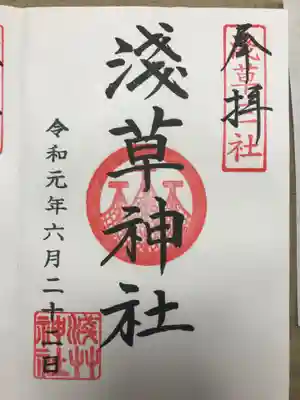 奉拝
淺草社
淺草神社
令和元年六月二十二日
淺艸神社